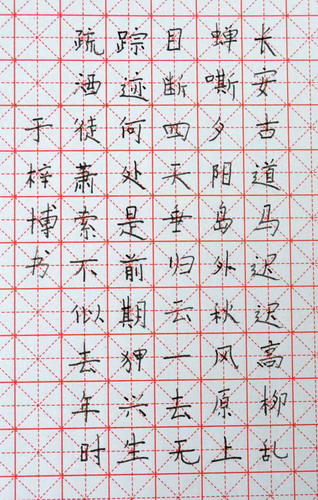 长安古道马迟迟高柳乱
蝉嘶夕阳岛外秋风原上
目断四天垂归云一去无
踪迹何处是前期狎兴生
疏酒徒萧索不似去年时
于梓博书